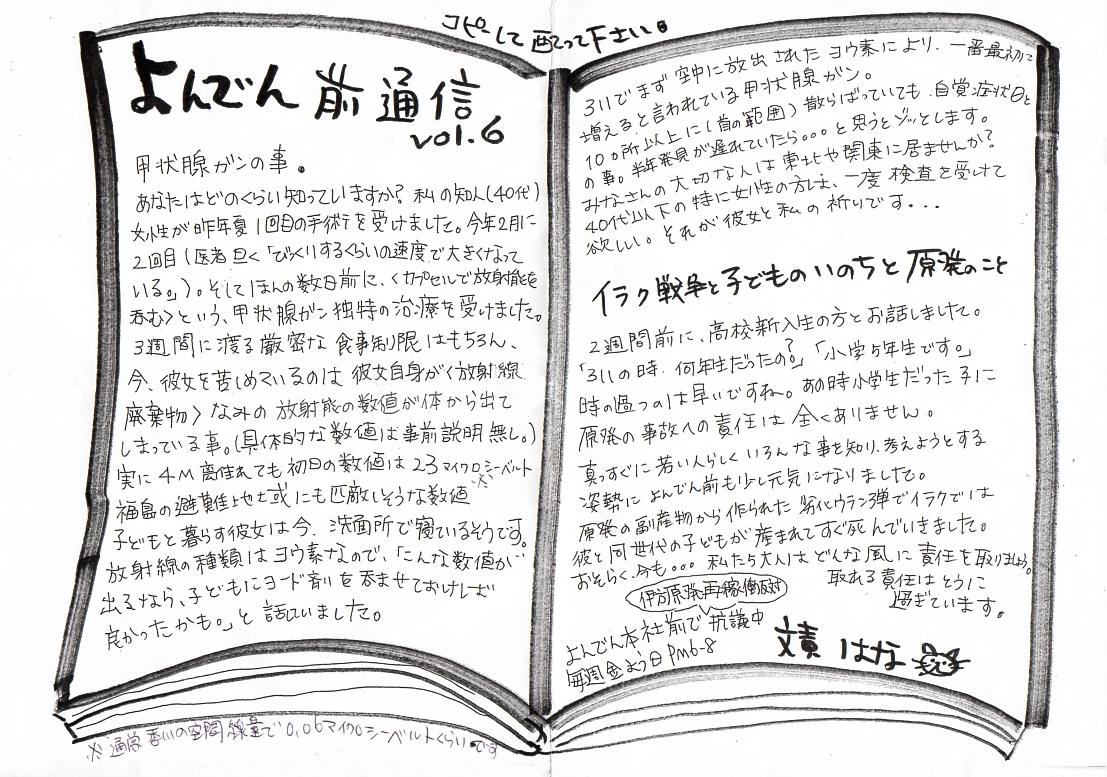 コピーして配って下さい。
よんでん前通信
vol.6
甲状腺ガンの事。
あなたはどのくらい知っていますか?私の知人(40代)
女性が昨年夏1回目の手術を受けました。今年2月に
2回目(医者曰く「びっくりするくらいの速度で大きくなって
いる。」)。そしてほんの数日前に、〈カプセルで放射能を
呑む〉という、甲状腺ガン独特の治療を受けました。
3週間に渡る厳密な食事制限はもちろん、
今、彼女を苦しめているのは彼女自身が〈放射線
廃棄物〉なみの放射能の数値が体から出て
しまっている事。(具体的な数値は事前説明無し。)
実に4M離れても初日の数値は23マイクロシーベルト※
福島の避難地域にも匹敵しそうな数値
子どもと暮らす彼女は今、洗面所で寝ているそうです。
放射線の種類はヨウ素なので、「こんな数値が
出るなら、子どもにヨード剤を呑ませておければ
良かったかも。」と話していました。
※通常香川の空間線量で0.06マイクロシーベルトくらいです
311でまず空中に放出されたヨウ素により、一番最初に
増えると言われている甲状腺ガン。
10ヶ所以上に(首の範囲)散らばっていても自覚症状0と
の事。半年発見が遅れていたら。。。と思うとゾッとします。
みなさんの大切な人は東北や関東に居ませんか?
40代以下の特に女性の方は、一度検査を受けて
欲しい。それが彼女と私の祈りです...
イラク戦争と子どものいのちと原発のこと
2週間前に、高校新入生の方とお話しました。
「311の時、何年生だったの?」「小学5年生です。」
時の過つのは早いですね。あの時小学生だった子に
原発の事故への責任は全くありません。
真っすぐに若い人らしくいろんな事を知り、考えようとする
姿勢によんでん前も少し元気になりました。
原発の副産物から作られた劣化ウラン弾でイラクでは
彼と同世代の子どもが産まれてすぐ死んでいきました。
おそらく、今も。。。私たち大人はどんな風に責任を取りましょう。
取れる責任はとうに
過ぎています。
伊方原発再稼働反対
よんでん本社前で抗議中
毎週金よう日Pm6-8
文責 はな